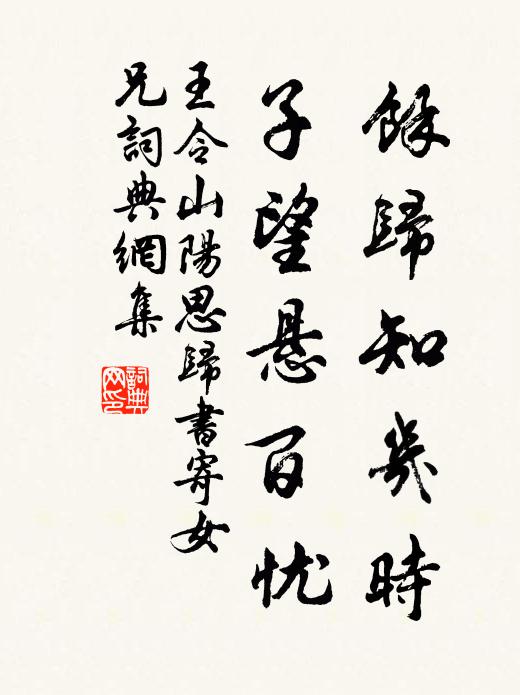 餘歸知幾時
子望悬百忧
王令山陽思歸書寄女
兄詞典網集
詞典
网印